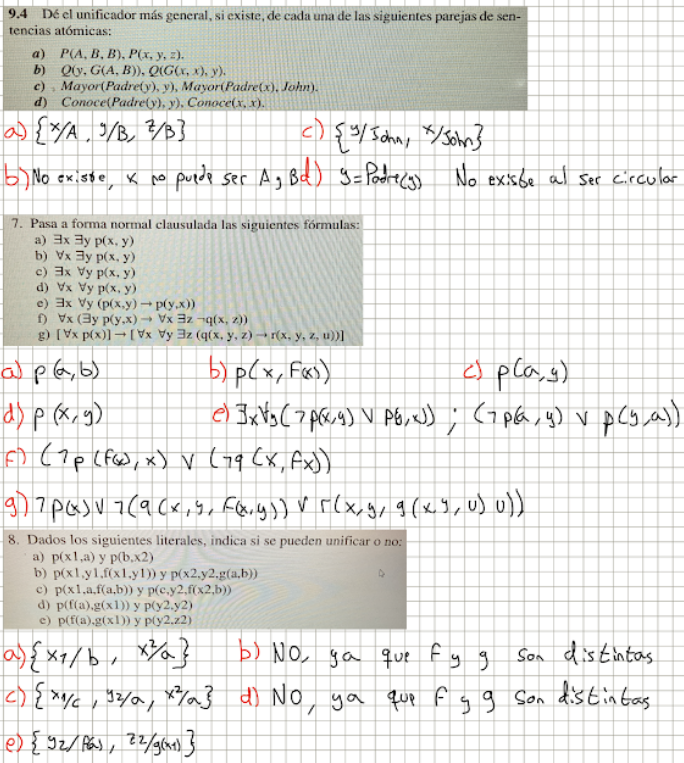 9.4 Dé el unificador más general, si existe, de cada una de las siguientes parejas de sen-
tencias atómicas:
a) P(A, B, B), P(x, y, z).
b) Q(y, G(A, B)), Q(G(x, x), y).
c) Mayor(Padre(y), y), Mayor(Padre(x), John).
d) Conoce(Padre(y), y), Conoce(x, x).
a) {x/A, y/B, z/B} c) {y/John, x/John}
b) No existe, x no puede ser A y B d) y=Padre(y) No existe al ser circular
7. Pasa a forma normal clausulada las siguientes fórmulas:
a) ∃x ∃y p(x, y)
b) ∀x ∃y p(x, y)
c) ∃x ∀y p(x, y)
d) ∀x ∀y p(x, y)
e) ∃x ∀y (p(x,y) → p(y,x))
f) ∀x (∃y p(y,x) → ∀x ∃z ¬q(x, z))
g) [∀x p(x)] → [∀x ∀y ∃z (q(x, y, z) → r(x, y, z, u))]
a) p(a,b) b) p(x, F(x)) c) p(a,y)
d) p(x,y) e) ∃x∀y(¬p(x,y) ∨ p(y,x)) ; (¬p(a,y) ∨ p(y,a))
f) (¬p(f(x), x) ∨ (¬q(x, fx))
g) ¬p(x) ∨ ¬(q(x, y, F(x,y)) ∨ r(x, y, g(x,y,u) u))
8. Dados los siguientes literales, indica si se pueden unificar o no:
a) p(x1,a) y p(b,x2)
b) p(x1,y1,f(x1,y1)) y p(x2,y2,g(a,b))
c) p(x1,a,f(a,b)) y p(c,y2,f(x2,b))
d) p(f(a),g(x1)) y p(y2,y2)
e) p(f(a),g(x1)) y p(y2,z2)
a) {x1/b, x2/a} b) NO, ya que f y g son distintas
c) {x1/c, y2/a, x2/a} d) NO, ya que f y g son distintas
e) {y2/f(a), z2/g(x1)}